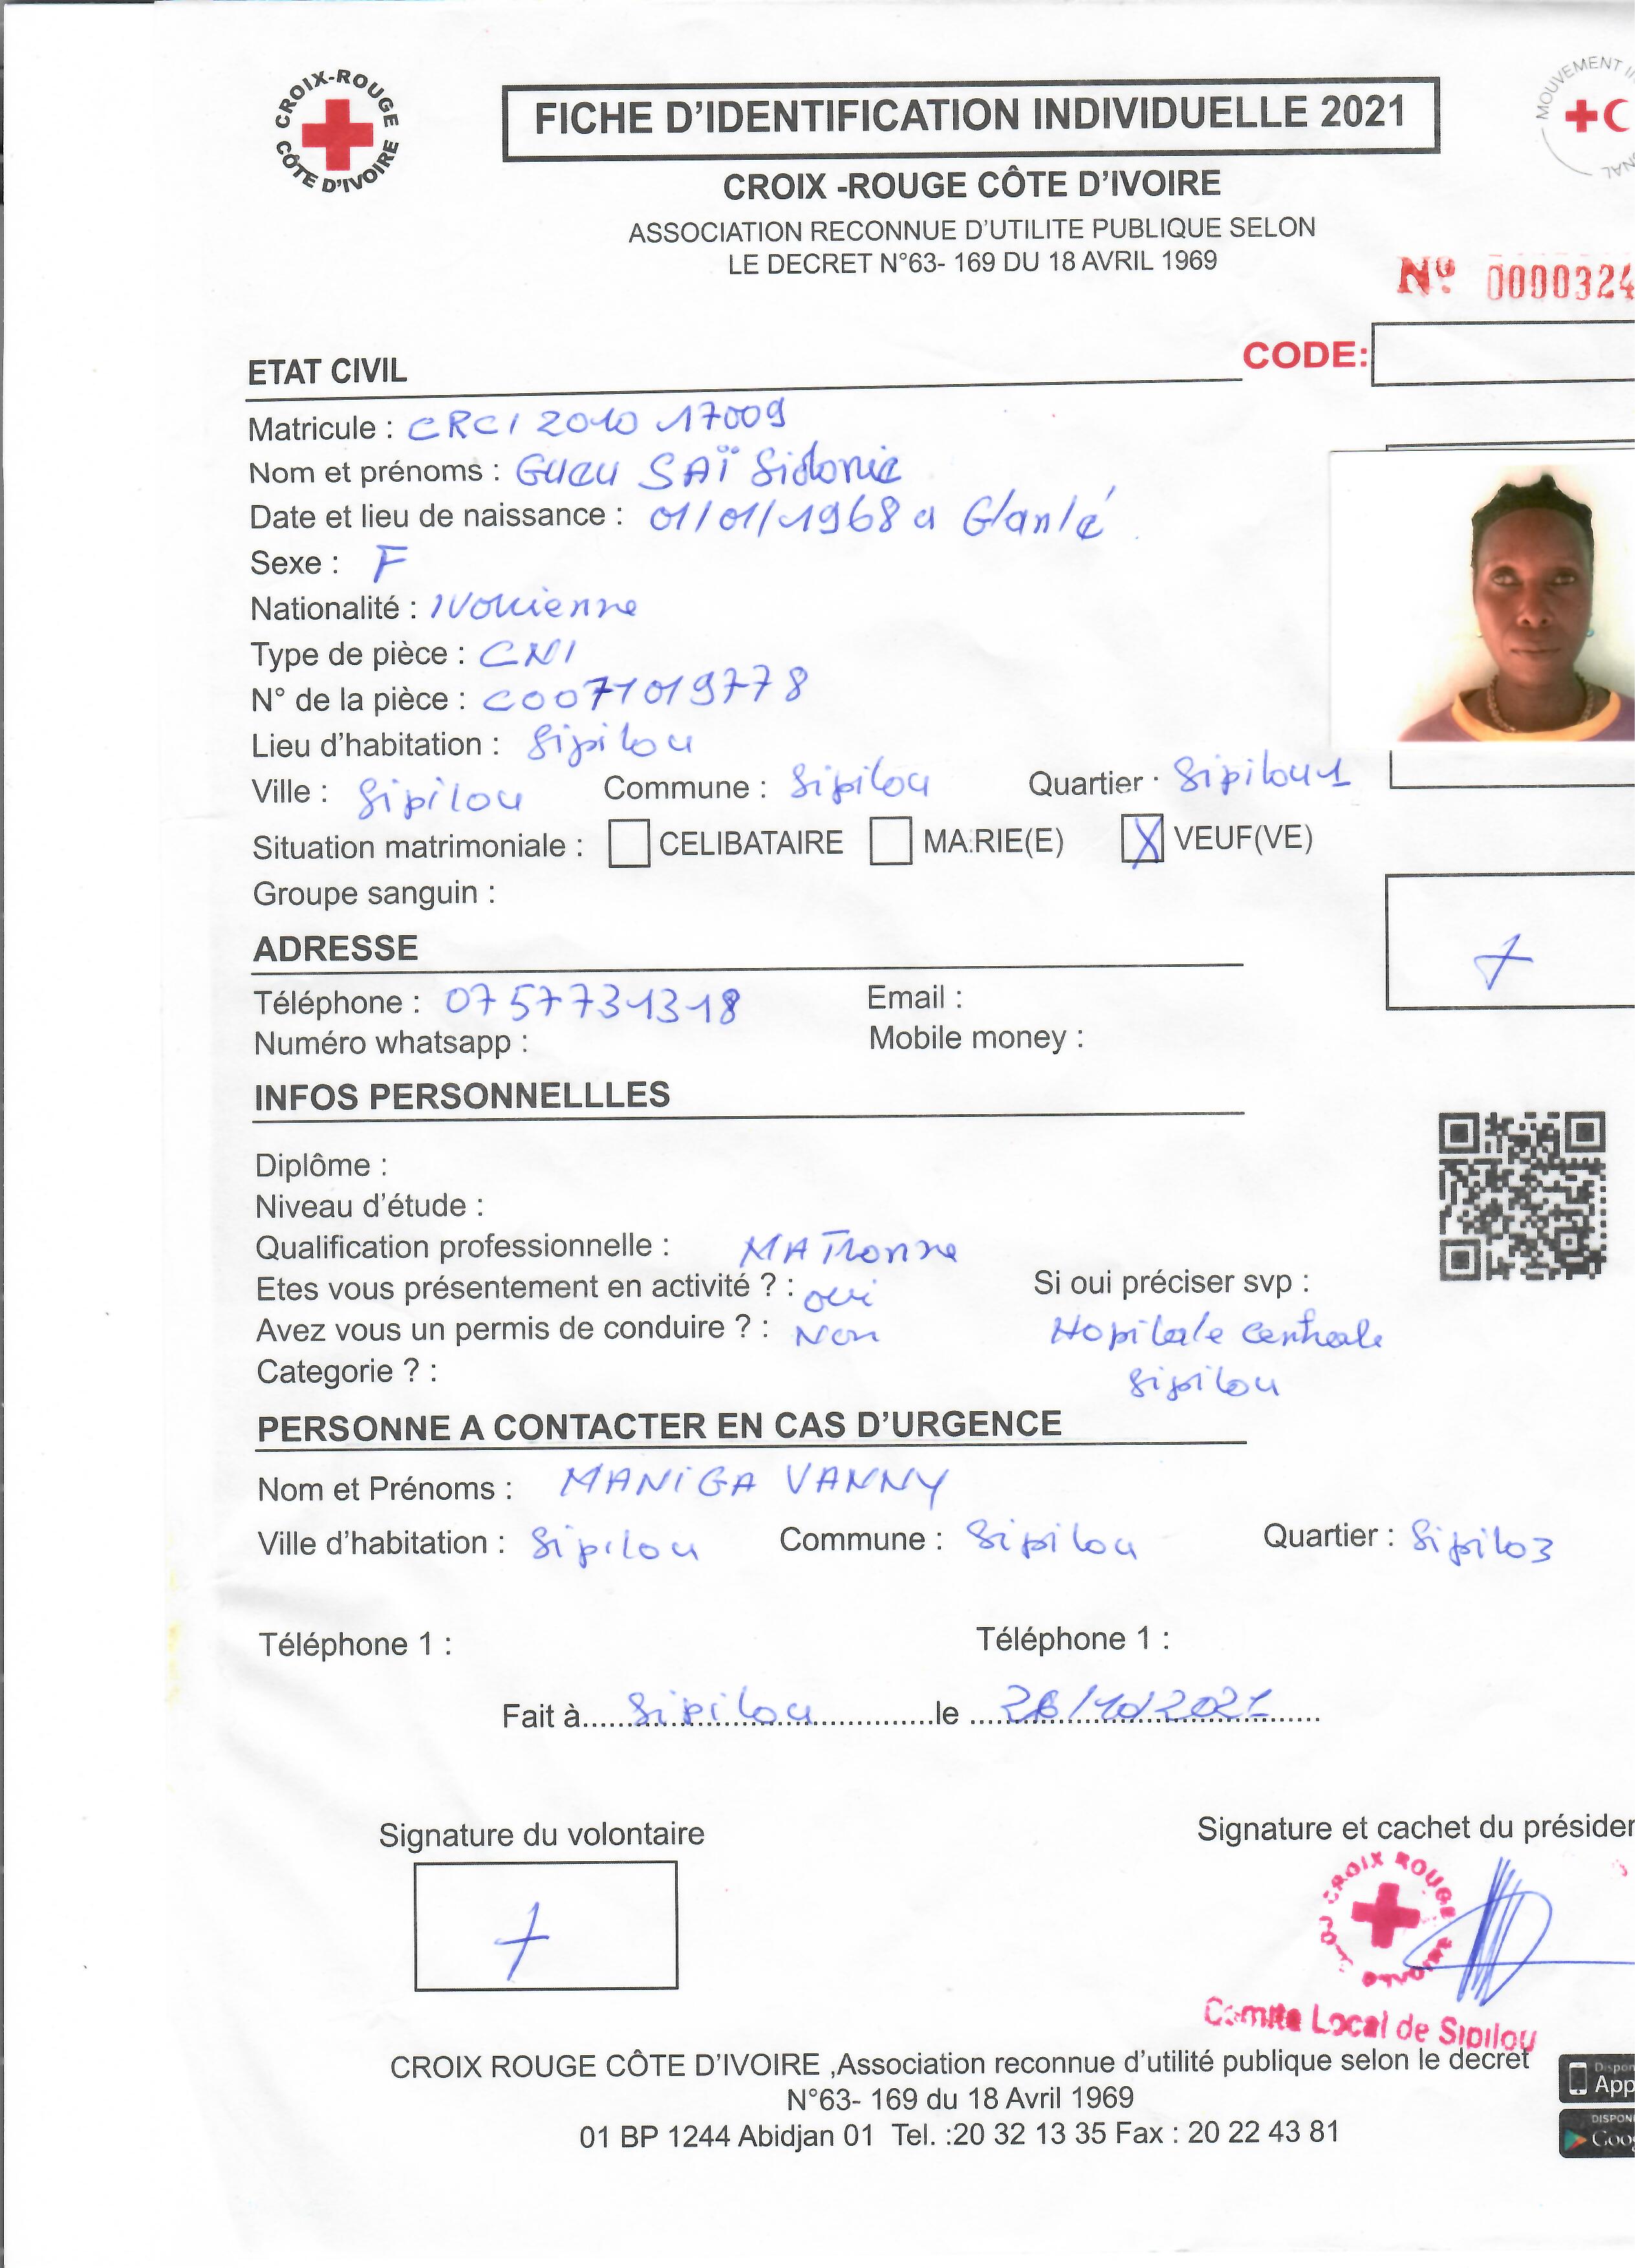 CROIX-ROUGE
CÔTE D'IVOIRE
FICHE D'IDENTIFICATION INDIVIDUELLE 2021
MOUVEMENT
CROIX -ROUGE CÔTE D'IVOIRE
ASSOCIATION RECONNUE D'UTILITE PUBLIQUE SELON
LE DECRET N°63- 169 DU 18 AVRIL 1969
Nº 0000324
ETAT CIVIL
CODE:
Matricule : CRCI 2010 17009
Nom et prénoms : Gueu SAÏ Sidonie
Date et lieu de naissance : 01/01/1968 a Glanlé
Sexe : F
Nationalité : IVoirienne
Type de pièce : CNI
N° de la pièce : C0071019778
Lieu d'habitation : Sipilou
Ville : Sipilou Commune : Sipilou Quartier : Sipilou1
Situation matrimoniale : CELIBATAIRE MARIE(E) X VEUF(VE)
Groupe sanguin :
ADRESSE
Téléphone : 0757731318 Email :
Numéro whatsapp : Mobile money :
INFOS PERSONNELLLES
Diplôme :
Niveau d'étude :
Qualification professionnelle : MATronne
Etes vous présentement en activité ? : oui Si oui préciser svp :
Avez vous un permis de conduire ? : Non Hopitale centrale
Categorie ? : Sipilou
PERSONNE A CONTACTER EN CAS D'URGENCE
Nom et Prénoms : MANIGA VANNY
Ville d'habitation : Sipilou Commune : Sipilou Quartier : Sipilo3
Téléphone 1 : Téléphone 1 :
Fait à Sipilou le 26/10/2021
Signature du volontaire Signature et cachet du présiden
CROIX ROUGE
Comite Local de Sipilou
CROIX ROUGE CÔTE D'IVOIRE ,Association reconnue d'utilité publique selon le decret
N°63- 169 du 18 Avril 1969
01 BP 1244 Abidjan 01 Tel. :20 32 13 35 Fax : 20 22 43 81
App
DISPON
Goo